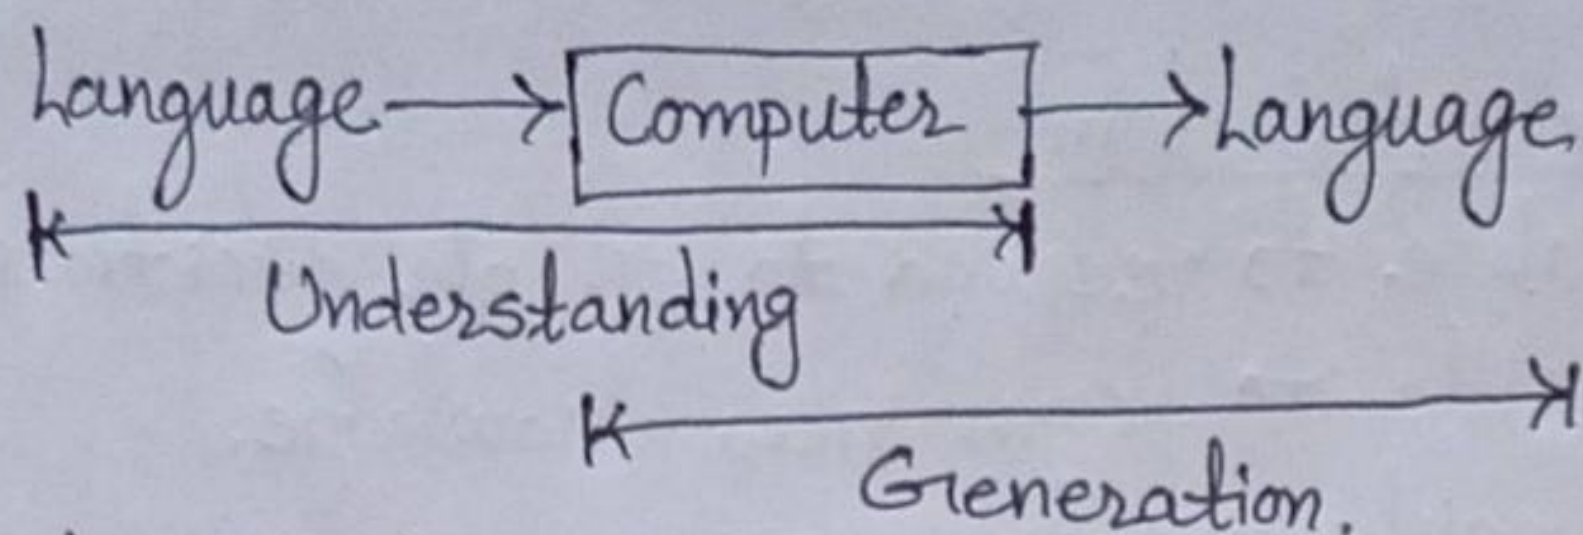 Language Computer Language
Understanding
Generation.